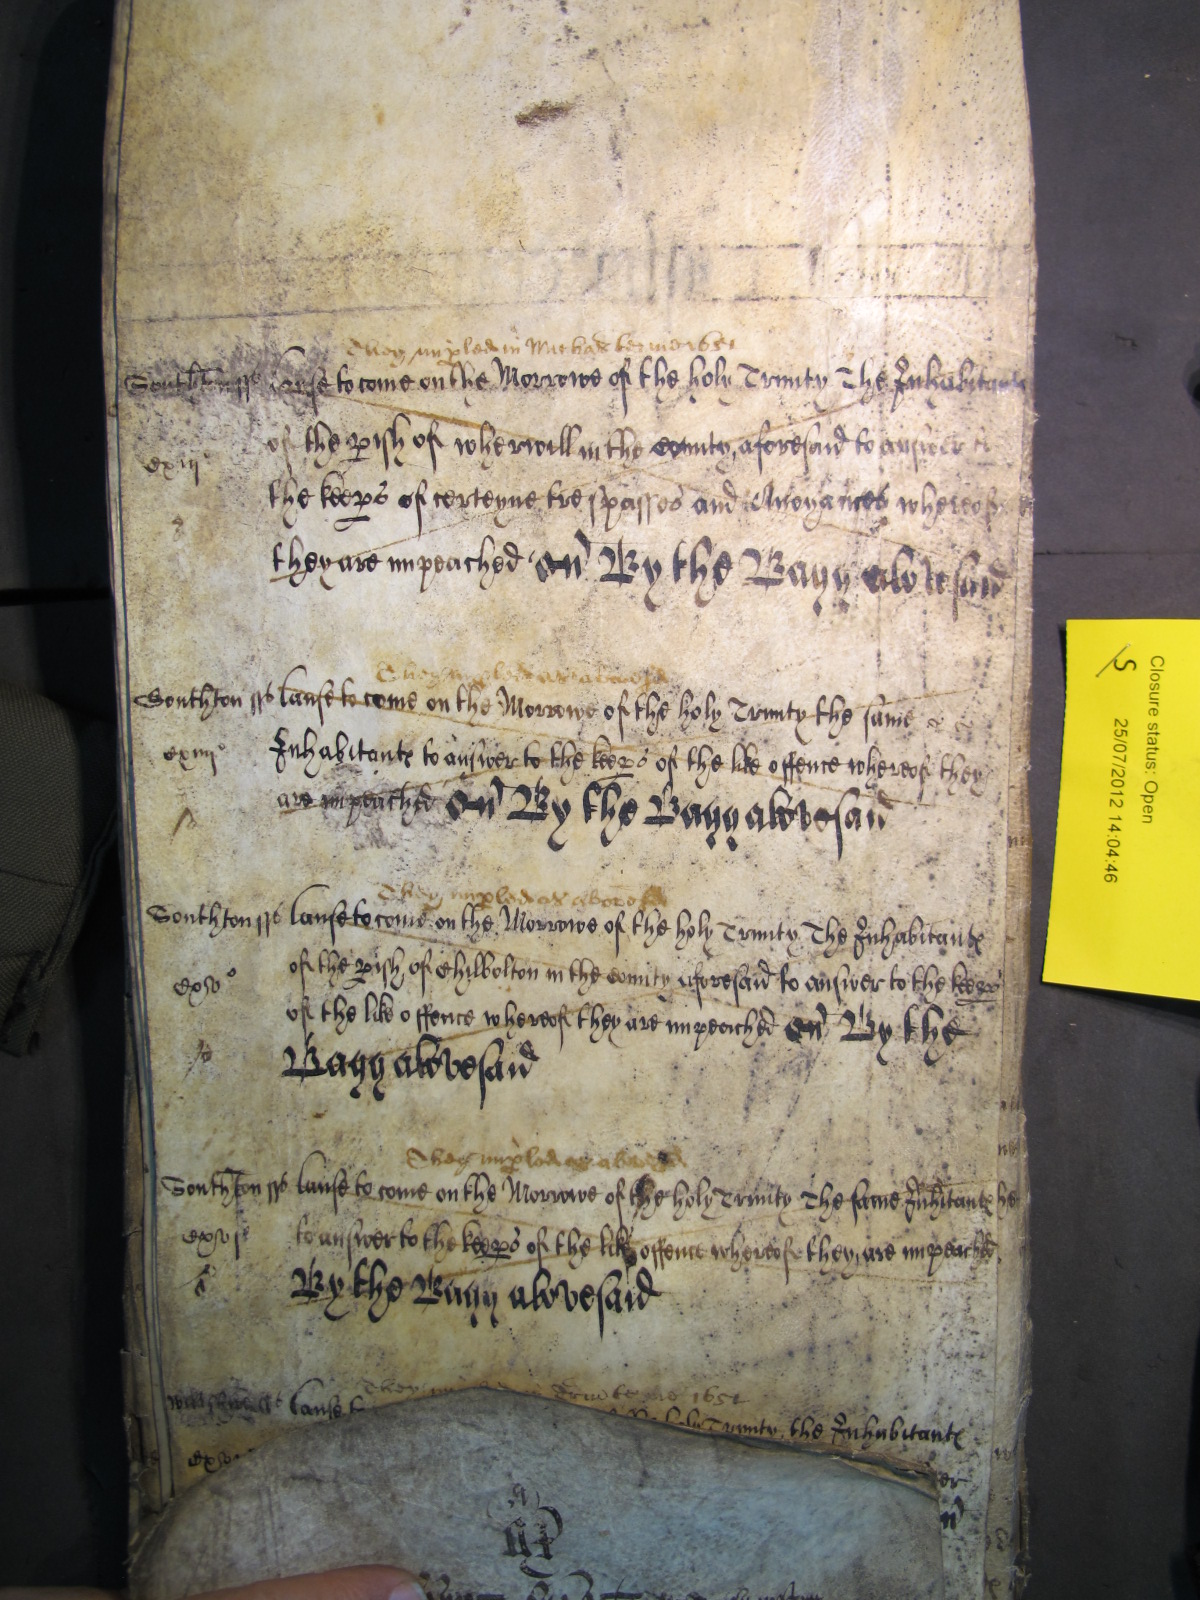 They impled in Michās terme 1651
Southton ss Cause to come on the Morrowe of the holy Trinity The Inhabitants
of the pish of wherwill in the County aforesaid to answer
cxiij°
the keeps of certeyne trespasses and Anoyances whereof
they are impeached on By the Bagg abovesaid
They impled as abovesd
Southton ss Cause to come on the Morrowe of the holy Trinity the same
cxiiij° Inhabitants to answer to the keeps of the like offence whereof they
are impeached on By the Bagg abovesaid
They impled as abovesd
Southton ss Cause to come on the Morrowe of the holy Trinity The Inhabitants
cxv° of the pish of Chilbolton in the County aforesaid to answer to the keeps
of the like offence whereof they are impeached on By the
Bagg abovesaid
They impled as abovesd
Southton ss Cause to come on the Morrowe of the holy Trinity The same Inhitants
cxvj° to answer to the keeps of the like offence whereof they are impeached
By the Bagg abovesaid
They Trin terme 1651
Cause holy Trinity, the Inhabitants
Closure status: Open
25/07/2012 14:04:46
S